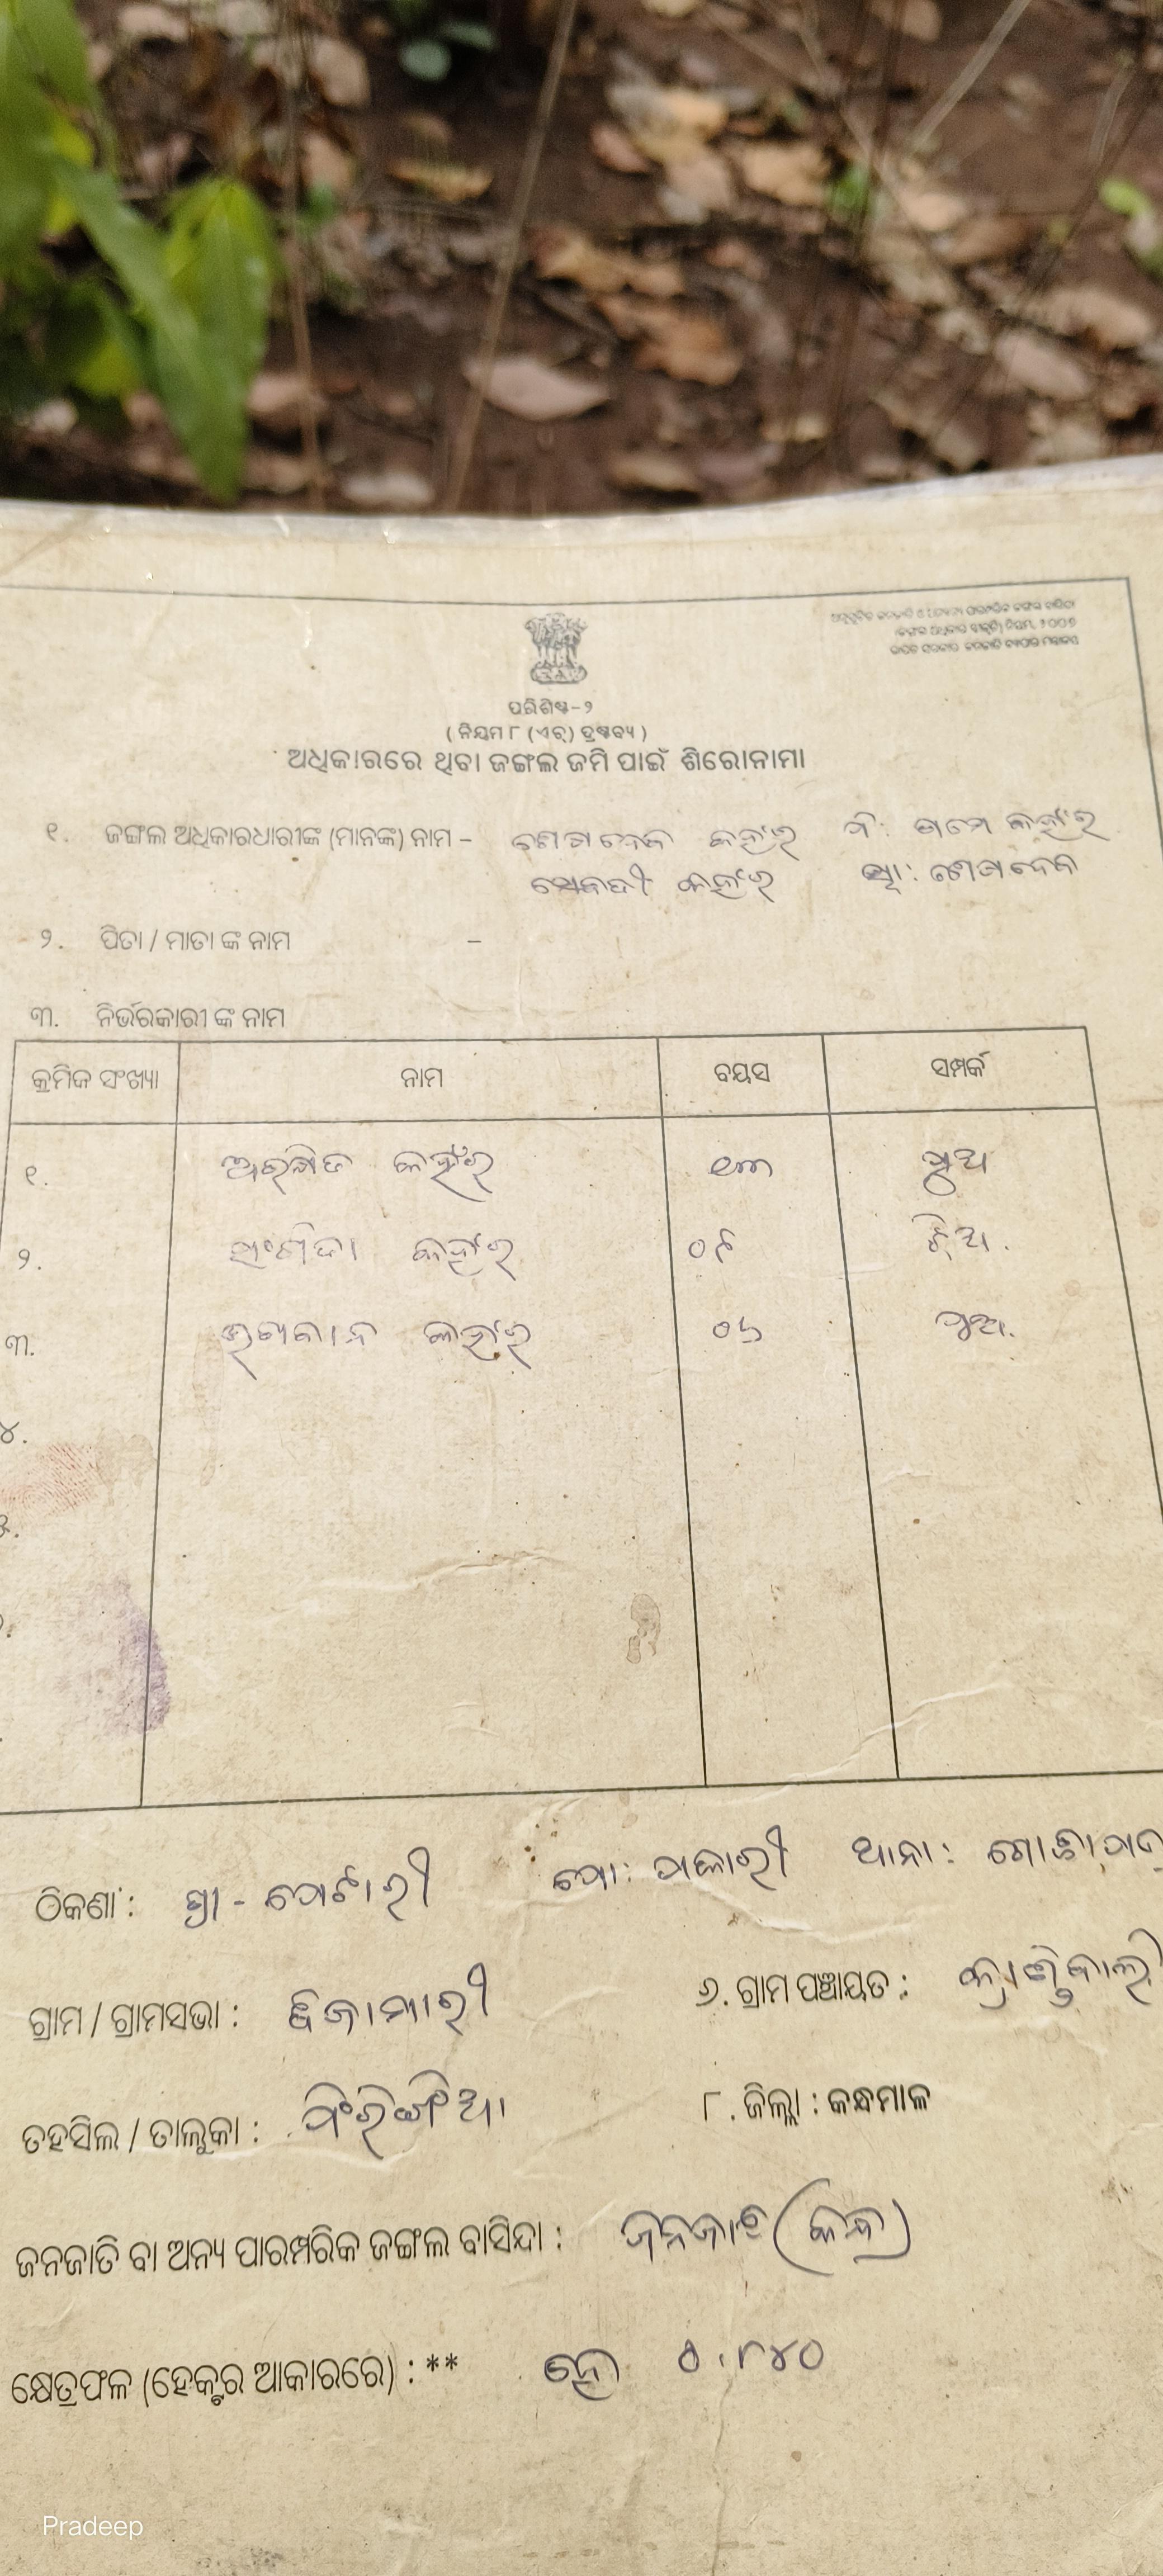 ଅନୁସୂଚିତ ଜନଜାତି ଓ ପାରମ୍ପରିକ ଜଙ୍ଗଲ ବାସିନ୍ଦା
(ଜଙ୍ଗଲ ଅଧିକାର ସ୍ୱୀକୃତି) ନିୟମ, ୨୦୦୭
ଭାରତ ସରକାର ଜନଜାତି ବ୍ୟାପାର ମନ୍ତ୍ରାଳୟ
ପରିଶିଷ୍ଟ-୨
( ନିୟମ ୮ (ଏଚ୍) ଦ୍ରଷ୍ଟବ୍ୟ )
ଅଧିକାରରେ ଥିବା ଜଙ୍ଗଲ ଜମି ପାଇଁ ଶିରୋନାମା
୧. ଜଙ୍ଗଲ ଅଧିକାରଧାରୀଙ୍କ (ମାନଙ୍କ) ନାମ – କହଁର ପି: କହଁର
କହଁର ସ୍ୱା:
୨. ପିତା / ମାତା ଙ୍କ ନାମ –
୩. ନିର୍ଭରକାରୀ ଙ୍କ ନାମ
କ୍ରମିକ ସଂଖ୍ୟା ନାମ ବୟସ ସମ୍ପର୍କ
୧. ଅରକ୍ଷିତ କହଁର ୧୩ ପୁଅ
୨. କହଁର ୦୮ ଝିଅ.
୩. କହଁର ୦୬ ପୁଅ.
୪.
୫.
ଠିକଣା : ଗ୍ରା - ପେଟାରୀ ପୋ: ପକାରୀ ଥାନା: ଗୋଛାପଡ଼ା
ଗ୍ରାମ / ଗ୍ରାମସଭା : ୬. ଗ୍ରାମ ପଞ୍ଚାୟତ :
ତହସିଲ / ତାଲୁକା : ଫିରିଙ୍ଗିଆ ୮. ଜିଲ୍ଲା : କନ୍ଧମାଳ
ଜନଜାତି ବା ଅନ୍ୟ ପାରମ୍ପରିକ ଜଙ୍ଗଲ ବାସିନ୍ଦା : ଜନଜାତି (କନ୍ଧ)
କ୍ଷେତ୍ରଫଳ (ହେକ୍ଟର ଆକାରରେ) : ** ହେ ୦.୮୪୦
Pradeep